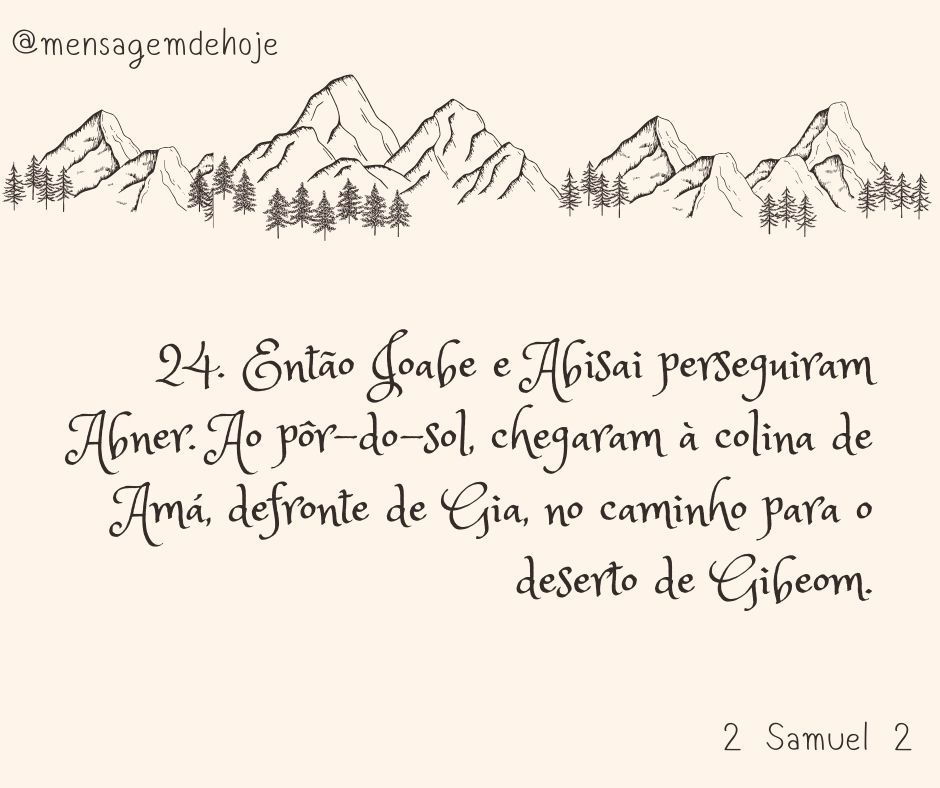 @mensagemdehoje
24. Então Joabe e Abisai perseguiram
Abner. Ao pôr-do-sol, chegaram à colina de
Amá, defronte de Gia, no caminho para o
deserto de Gibeom.
2 Samuel 2